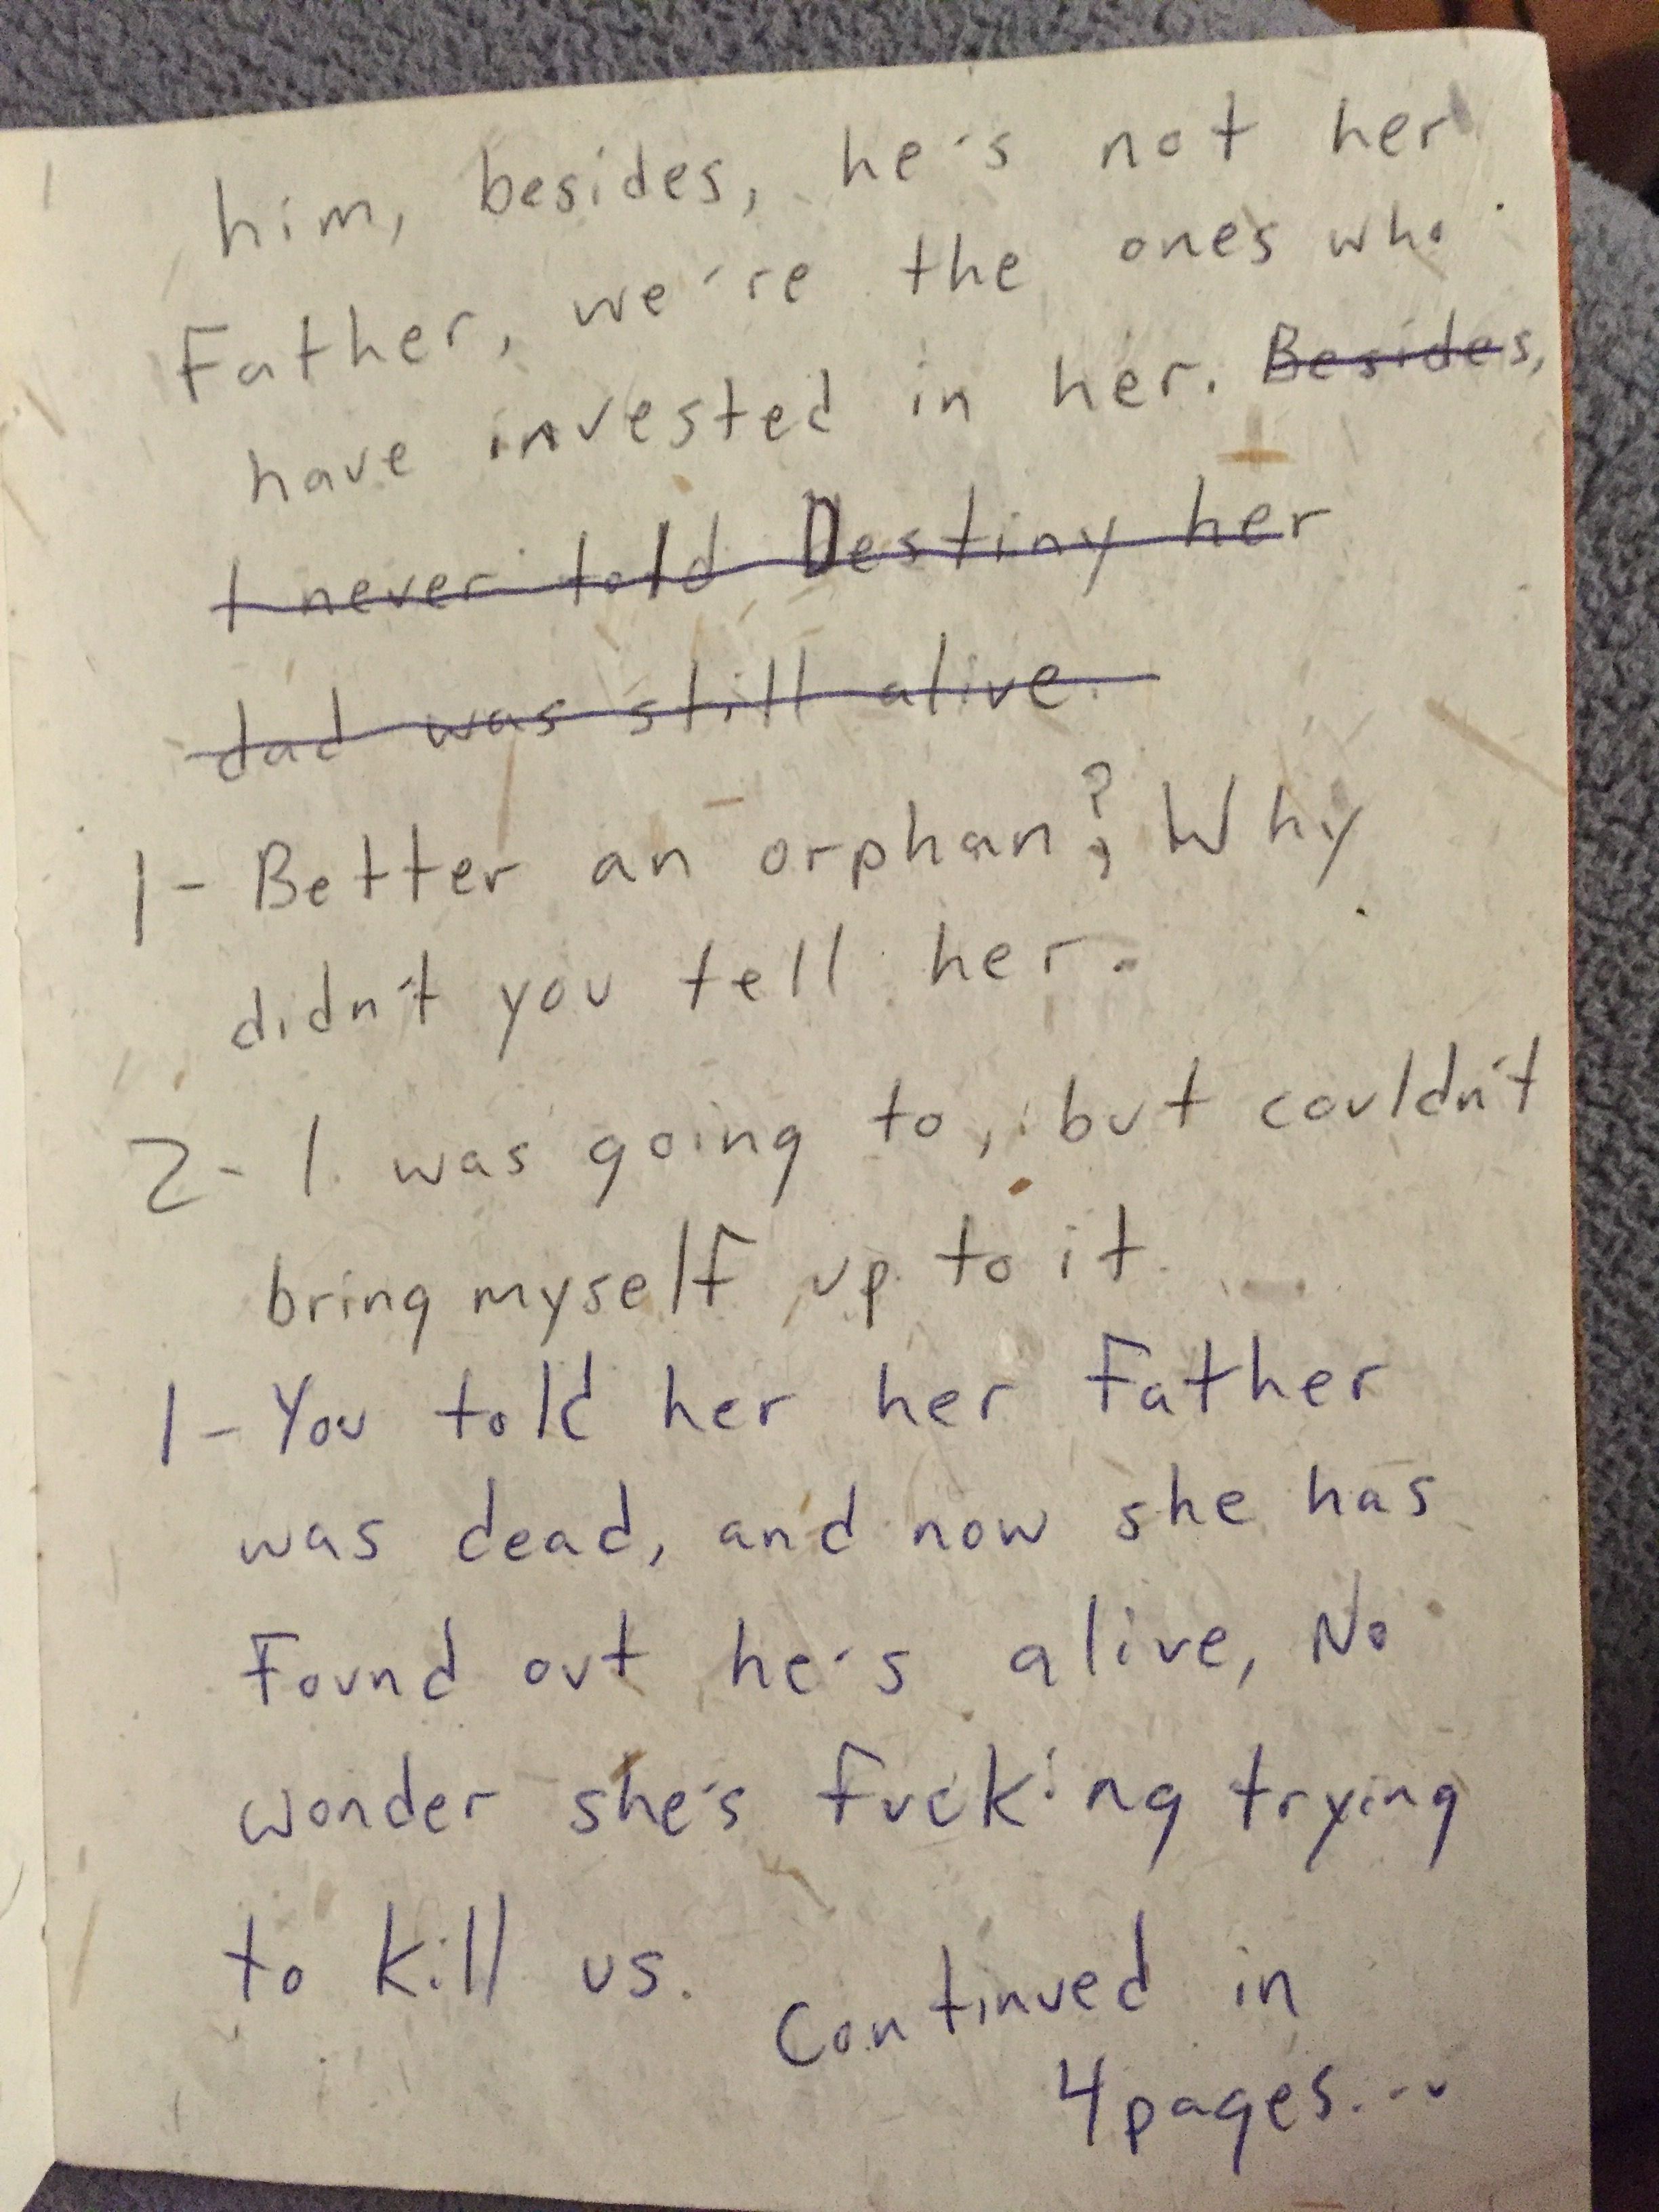 him, besides, he's not her
Father, we're the ones who
have invested in her. Besides,
I never told Destiny her
dad was still alive.
1- Better an orphan?, Why
didn't you tell her.
2- I was going to, but couldn't
bring myself up to it.
1- You told her her Father
was dead, and now she has
Found out he's alive, No
wonder she's fucking trying
to kill us.
Continued in
4 pages...